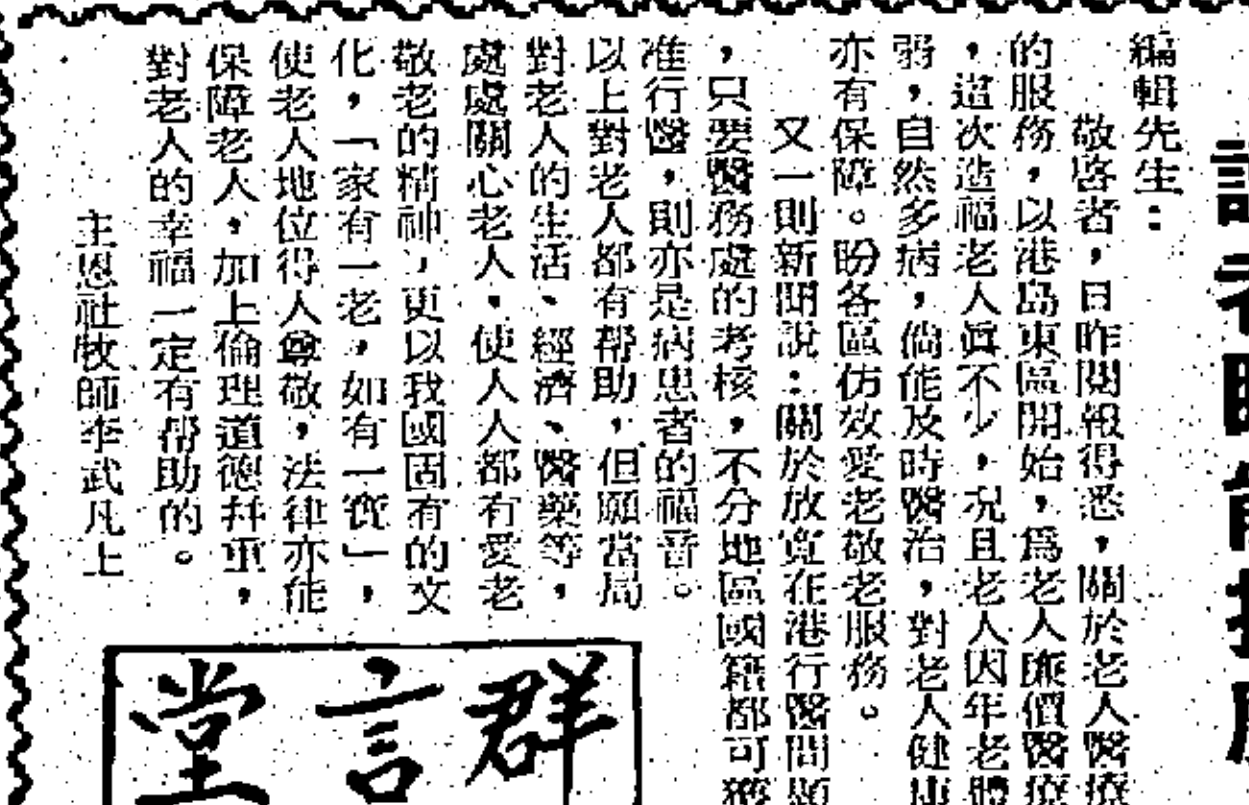 編輯先生：
敬啓者，日昨閱報得悉，關於老人醫療
的服務，以港島東區開始，爲老人廉價醫療
，這次造福老人眞不少，况且老人因年老體
弱，自然多病，倘能及時醫治，對老人健康
亦有保障。盼各區仿效愛老敬老服務。
又一則新聞說：關於放寬在港行醫問題
，只要醫務處的考核，不分地區國籍都可獲
准行醫，則亦是病患者的福音。
以上對老人都有帮助，但願當局
對老人的生活、經濟、醫藥等，
處處關心老人，使人人都有愛老
敬老的精神，更以我國固有的文
化，「家有一老，如有一寶」，
使老人地位得人尊敬，法律亦能
保障老人，加上倫理道德幷重，
對老人的幸福一定有帮助的。
主恩社牧師李武凡上
群言堂